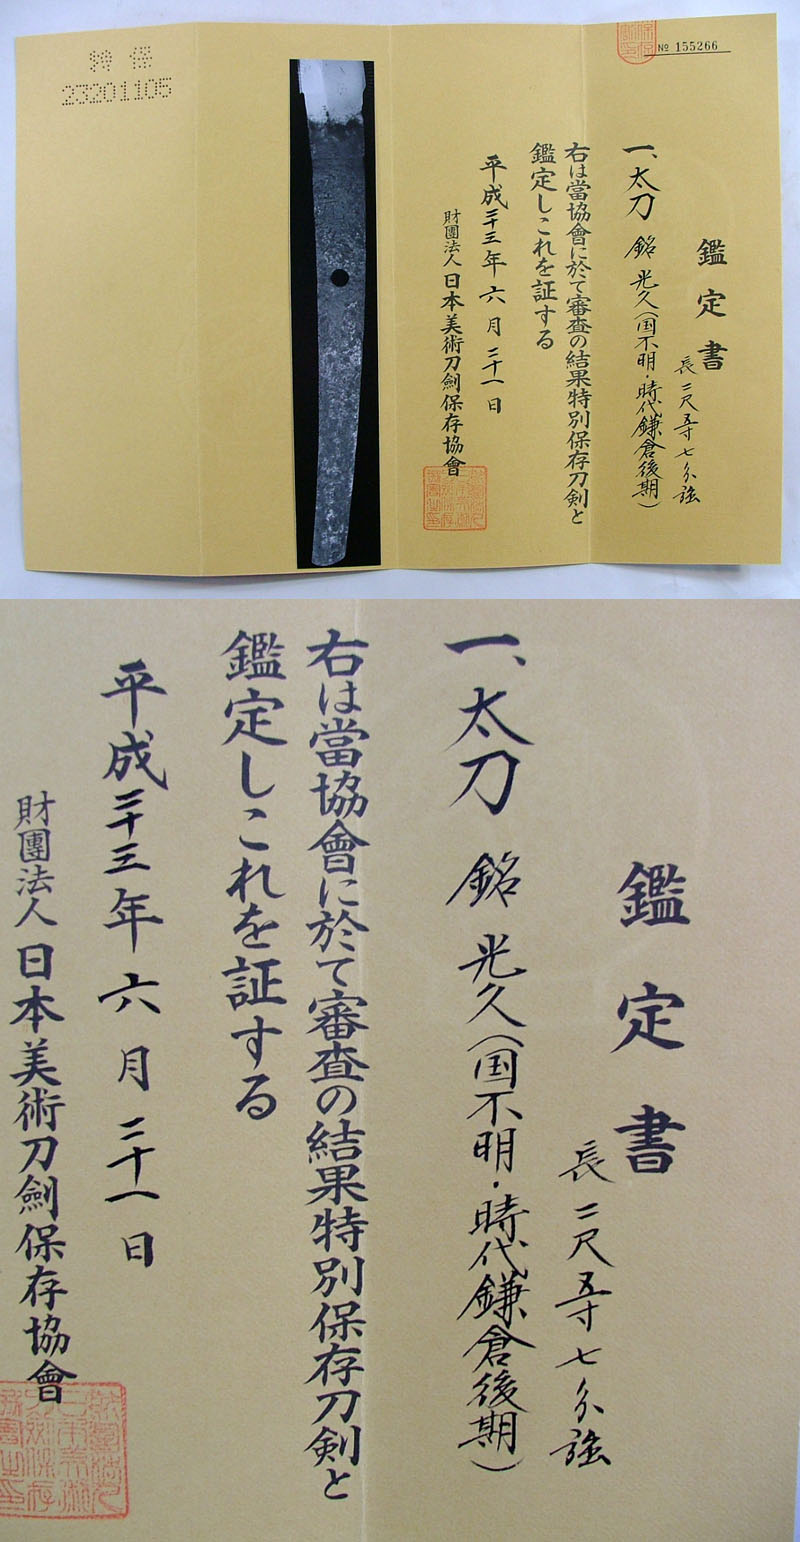 № 155266
鑑定書
長二尺五寸七分強
一、太刀 銘 光久(国不明・時代鎌倉後期)
右は當協會に於て審査の結果特別保存刀剣と
鑑定しこれを証する
平成二十三年六月二十一日
財團法人日本美術刀劍保存協會
特保
23201105
鑑定書
長二尺五寸七分強
一、太刀 銘 光久(国不明・時代鎌倉後期)
右は當協會に於て審査の結果特別保存刀剣と
鑑定しこれを証する
平成二十三年六月二十一日
財團法人日本美術刀劍保存協會